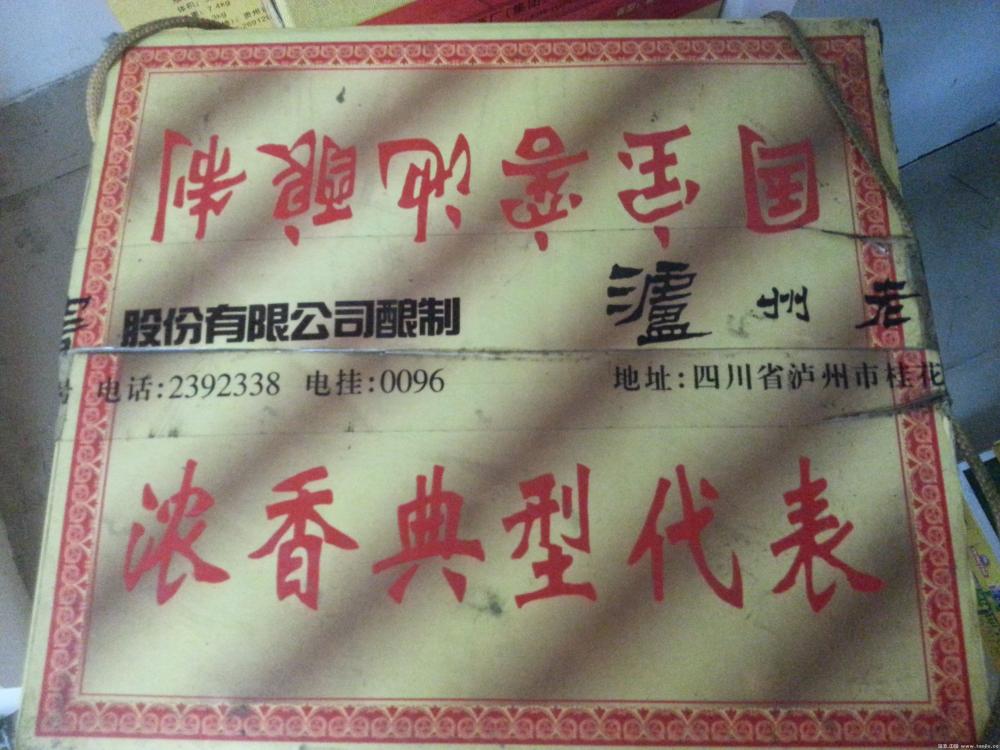 国宝窖池酿制
股份有限公司酿制 瀘州老
电话:2392338 电挂:0096 地址:四川省泸州市桂花
浓香典型代表